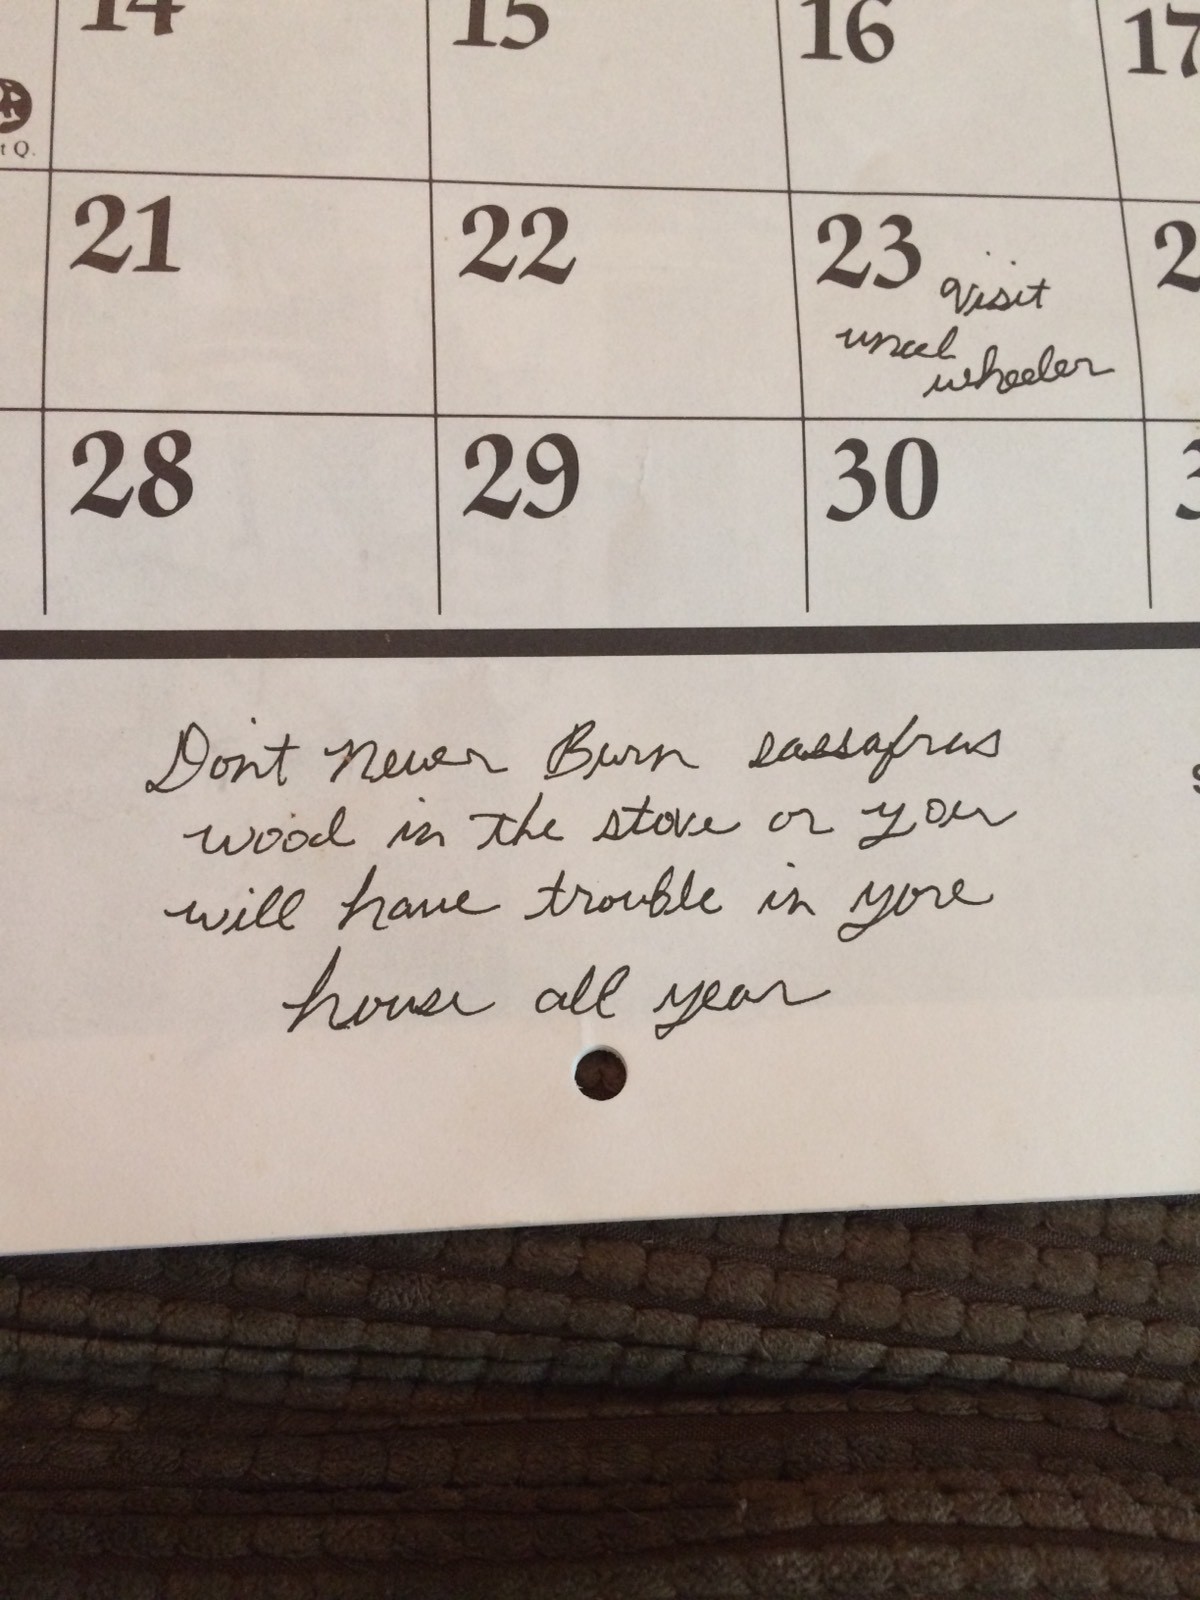 14 15 16 17
t Q.
21 22 23 Visit
uncel
wheeler
28 29 30
Don't Never Burn sassafras
wood in the stove or you
will have trouble in yore
house all year